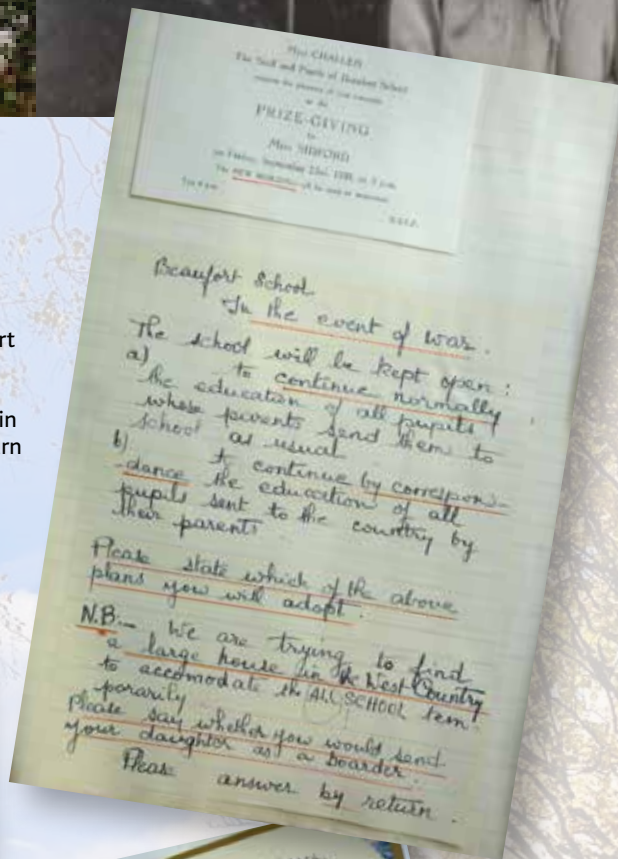 Miss CHALLEN
The Staff and Pupils of Beaufort School
request the pleasure of your company
at the
PRIZE-GIVING
by
Miss MIDFORD
on Friday, September 23rd, at 3 p.m.
The NEW BUILDING will be open
Tea 4 p.m.
R.S.V.P.
Beaufort School
In the event of war.
The school will be kept open :
a) to continue normally
the education of all pupils
whose parents send them to
school as usual
b) to continue by correspon-
-dance the education of all
pupils sent to the country by
their parents
Please state which of the above
plans you will adopt.
N.B. We are trying to find
a large house in the West Country
to accomodate the ALL SCHOOL tem-
porarily
Please say whether you would send
your daughter as a boarder.
Please answer by return.
rt
in
rn